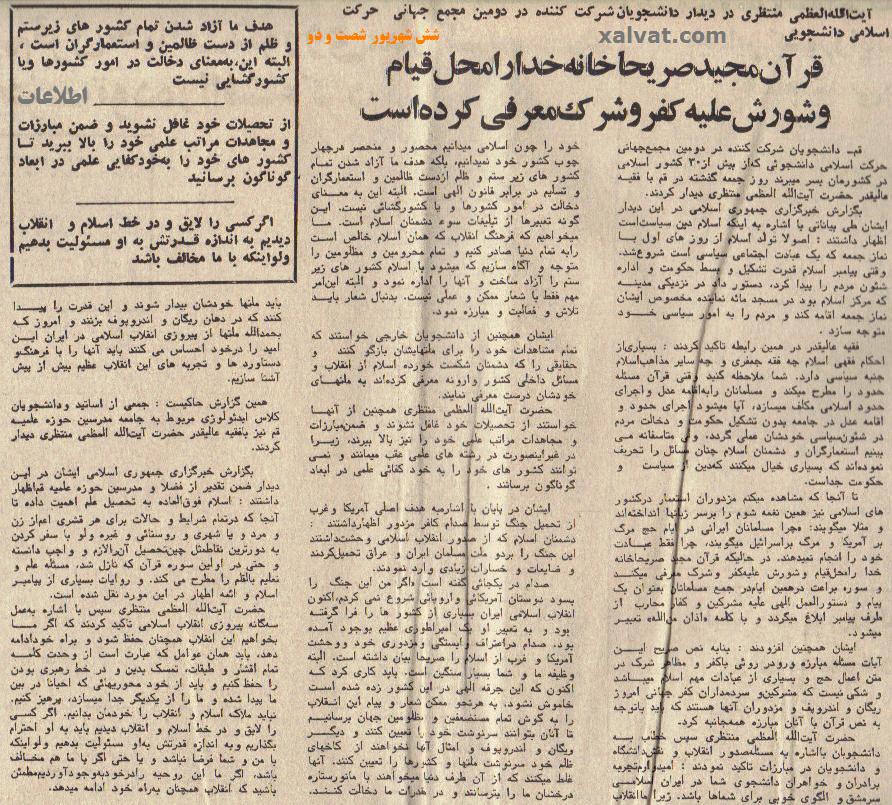 آیت‌الله‌العظمی منتظری در دیدار دانشجویان شرکت کننده در دومین مجمع جهانی حرکت
اسلامی دانشجویی
شش شهریور شصت و دو
xalvat.com
قرآن مجید صریحا خانه خدا را محل قیام
و شورش علیه کفر و شرک معرفی کرده‌است
هدف ما آزاد شدن تمام کشور های زیرستم
و ظلم از دست ظالمین و استعمارگران است ،
البته این، به‌معنای دخالت در امور کشورها ویا
کشورگشایی نیست
اطلاعات
از تحصیلات خود غافل نشوید و ضمن مبارزات
و مجاهدات مراتب علمی خود را بالا ببرید تــا
کشور های خود را به‌خودکفایی علمی در ابعاد
گوناگون برسانید
اگر کسی را لایق و در خط اسلام و انقلاب
دیدیم به اندازه قدرتش به او مسئولیت بدهیم
ولو اینکه با ما مخالف باشد
قم‌ـ دانشجویان شرکت کننده در دومین مجمع‌جهانی
حرکت اسلامی دانشجوئی که‌از بیش از ۳۰ کشور اسلامی
در کشورمان بسر میبرند روز جمعه گذشته در قم با فقیه
عالیقدر حضرت آیت‌الله العظمی منتظری دیدار کردند.
بگزارش خبرگزاری جمهوری اسلامی در این دیدار
ایشان طی بیاناتی با اشاره به اینکه اسلام دین سیاست‌است
اظهار داشتند : اصولا تولد اسلام از روز های اول بــا
نماز جمعه که یک عبادت اجتماعی سیاسی است شروع‌شد.
وقتی پیامبر اسلام قدرت تشکیل و بسط حکومت و اداره
شئون مردم را پیدا کرد، دستور داد در نزدیکی مدینــه
که مرکز اسلام بود در مسجد مائه نماینده مخصوص ایشان
نماز جمعه اقامه کند و مردم را به امور سیاسی خــود
متوجه سازد .
فقیه عالیقدر در همین رابطه تاکید کردند : بسیاری‌از
احکام فقهی اسلام چه فقه جعفری و چه سایر مذاهب‌اسلام
جنبه سیاسی دارد. شما ملاحظه کنید وقتی قرآن مسئله
حدود را مطرح میکند و مسلمانان رابه‌اقامه عدل و اجرای
حدود اسلامی مکلف میسازد، آیا میشود اجرای حدود و
اقامه عدل در جامعه بدون تشکیل حکومت و دخالت مردم
در شئون‌سیاسی خودشان عملی گردد، ولی متاسفانه مــی
بینیم استعمارگران و دشمنان اسلام چنان مسائل را تحریف
نموده‌اند که بسیاری خیال میکنند که‌دین از سیاست و
حکومت جداست.
تا آنجا که مشاهده میکنم مزدوران استعمار درکشور
های اسلامی نیز همین نغمه شوم را برسر زبانها انداخته‌اند
و مثلا میگویند: «چرا مسلمانان ایرانی در ایام حج مرگ
بر آمریکا و مرگ براسرائیل میگویند، چرا فقط عبــادت
خود را انجام نمیدهند. در حالیکه قرآن مجید صریحاخانه
خدا رامحل‌قیام وشورش علیه‌کفر وشرک معرفی میکنــد
و سوره برائت درهمین ایام‌در جمع مسلمانان بعنوان یک
پیام و دستورالعمل الهی علیه مشرکین و کفار محارب از
طرف پیامبر ابلاغ میگردد و با کلمه «اذان من‌الله» تعبیر
میشود.
ایشان همچنین افزودند : بنابه نص صریح ایــن
آیات مسئله مبارزه ورودر روئی باکفر و مظاهر شرک در
متن اعمال حج و بسیاری از عبادات مهم اسلام میباشــد
و شکی نیست که مشرکین‌و سردمداران کفر جهانی امروز
ریگان و اندروپف و مزدوران آنها هستند که باید باتوجه
به نص قرآن با آنان مبارزه همه‌جانبه کرد.
حضرت آیت‌الله العظمی منتظری سپس خطاب بــه
دانشجویان بااشاره به مسئله‌صدور انقلاب و نقش‌دانشگاه
و دانشجویان در مبارزات تاکید نمودند : امیدوارم‌تجربه
برادران و خواهران دانشجوی شما در ایران اسلامــی
سرمشق و الگوی خوبی برای شماها باشد، زیرا ماانقلاب
خود را چون اسلامی میدانیم محصور و منحصر درچهار
چوب کشور خود نمیدانیم، بلکه هدف ما آزاد شدن تمام
کشور های زیر ستم و ظلم ازدست ظالمین و استعمارگران
و تسلیم در برابر قانون الهی است. البته این به معنــای
دخالت در امور کشورها و یا کشورگشائی نیست. ایــن
گونه تعبیرها از تبلیغات سوء دشمنان اسلام است. مــا
میخواهیم که فرهنگ انقلاب که همان اسلام خالص است
رابه تمام دنیا صادر کنیم و تمام محرومین و مظلومین را
متوجه و آگاه سازیم که میشود با اسلام کشور های زیر
ستم را آزاد ساخت و آنها را اداره نمود و البته این‌امر
مهم فقط با شعار ممکن و عملی نیست، بدنبال شعار بایــد
تلاش و فعالیت و مبارزه نمود.
ایشان همچنین از دانشجویان خارجی خواستند که
تمام مشاهدات خود را برای ملتهایشان بازگو کنند و
حقایقی را که دشمنان شکست خورده اسلام از انقلاب و
مسائل داخلی کشور وارونه معرفی کرده‌اند به ملتهــای
خودشان درست معرفی نمایند.
حضرت آیت‌الله العظمی منتظری همچنین از آنهــا
خواستند از تحصیلات خود غافل نشوند و ضمن‌مبارزات
و مجاهدات مراتب علمی خود را نیز بالا ببرند، زیــرا
در غیراینصورت در رشته های علمی عقب میمانند و نمی
توانند کشور های خود را به خود کفائی علمی در ابعاد
گوناگون برسانند .
ایشان در پایان با اشاربه هدف اصلی آمریکا وغرب
از تحمیل جنگ توسط صدام کافر مزدور اظهارداشتند :
دشمنان اسلام که از صدور انقلاب اسلامی وحشت‌داشتند
این جنگ را بردو ملت مسلمان ایران و عراق تحمیل‌کردند
و ضایعات و خسارات زیادی وارد نمودند.
صدام در یکجائی گفته است «اگر من این جنگ را
بسود دوستان آمریکائی واروپائی شروع نمی کردم،اکنون
انقلاب اسلامی ایران بسیاری از کشور ها را فرا گرفتــه
بود و به تعبیر او یک امپراطوری عظیم بوجود آمــده
بود. صدام دراعتراف وابستگی ومزدوری خود ووحشت
آمریکا و غرب از اسلام را صریحا بیان داشته است. البته
وظیفه ما و شما بسیار سنگین است. باید کاری کرد کــه
اکنون که این جرقه الهی در این کشور زده شده اســت
خاموش نشود، به هرنحو ممکن شعار و پیام این انقــلاب
را به گوش تمام مستضعفین و مظلومین جهان برسانیــم
تا آنان بتوانند سرنوشت خود را تعیین کنند و دیگــر
ریگان و اندروپوف و امثال آنها نخواهند از کاخهای
ظلم خود سرنوشت ملتها و کشورها را تعیین کنند. آنها
غلط میکنند که از آن طرف دنیا میخواهند با مانورستاره
درخشان ما را بترسانند و در مقدرات ما دخالت کننــد.
باید ملتها خودشان بیدار شوند و این قدرت را پیــدا
کنند که در دهان ریگان و اندروپوف بزنند و امروز کــه
بحمدالله ملتها از پیروزی انقلاب اسلامی در ایران ایــن
امید را درخود احساس می کنند باید آنها را با فرهنگ‌و
دستاورد ها و تجربه های این انقلاب عظیم بیش از پیش
آشنا سازیم.
همین گزارش حاکیست : جمعی از اساتید ودانشجویان
کلاس ایدئولوژی مربوط به جامعه مدرسین حوزه علمیه
قم نیز بافقیه عالیقدر حضرت آیت‌الله العظمی منتظری دیدار
کردند.
بگزارش خبرگزاری جمهوری اسلامی ایشان در ایــن
دیدار ضمن تقدیر از فضلا و مدرسین حوزه علمیه قم‌اظهار
داشتند : اسلام فوق‌العاده به تحصیل علم اهمیت داده تا
آنجا که درتمام شرایط و حالات برای هر قشری اعم‌از زن
و مرد و یا شهری و روستائی و غیره ولو با سفر کردن
به دورترین نقاط‌مثل چین‌تحصیل آن‌رالازم و واجب دانسته
و حتی در اولین سوره قرآن که نازل شد، مسئله علم و
تعلیم باقلم را مطرح می کند. و روایات بسیاری از پیامبر
اسلام و ائمه اطهار در این مورد نقل شده است.
حضرت آیت‌الله العظمی منتظری سپس با اشاره به‌عمل
سه‌گانه پیروزی انقلاب اسلامی تاکید کردند که اگر مــا
بخواهیم این انقلاب همچنان حفظ شود و براه خودادامه
دهد، باید همان عوامل که عبارت است از وحدت کلمــه
تمام اقشار و طبقات، تمسک بدین و در خط رهبری بودن
را حفظ کنیم و باید از خود محوریهائی که احیانا در بین
ما پیدا شده و ما را از یکدیگر جدا میسازد، پرهیز کنیم.
نباید ملاک اسلام و انقلاب را خودمان بدانیم. اگر کسی
را لایق و در خط اسلام و انقلاب دیدیم باید به او احترام
بگذاریم وبه اندازه قدرتش به‌او مسئولیت بدهیم ولواینکه
با من و شما فرضا نباشد و یا حتی اگر با ما هم مخالف
باشد، اگر ما این روحیه رادرخودبه‌وجودآوردیم‌مطمئن
باشید که انقلاب همچنان به‌راه خود ادامه میدهد.